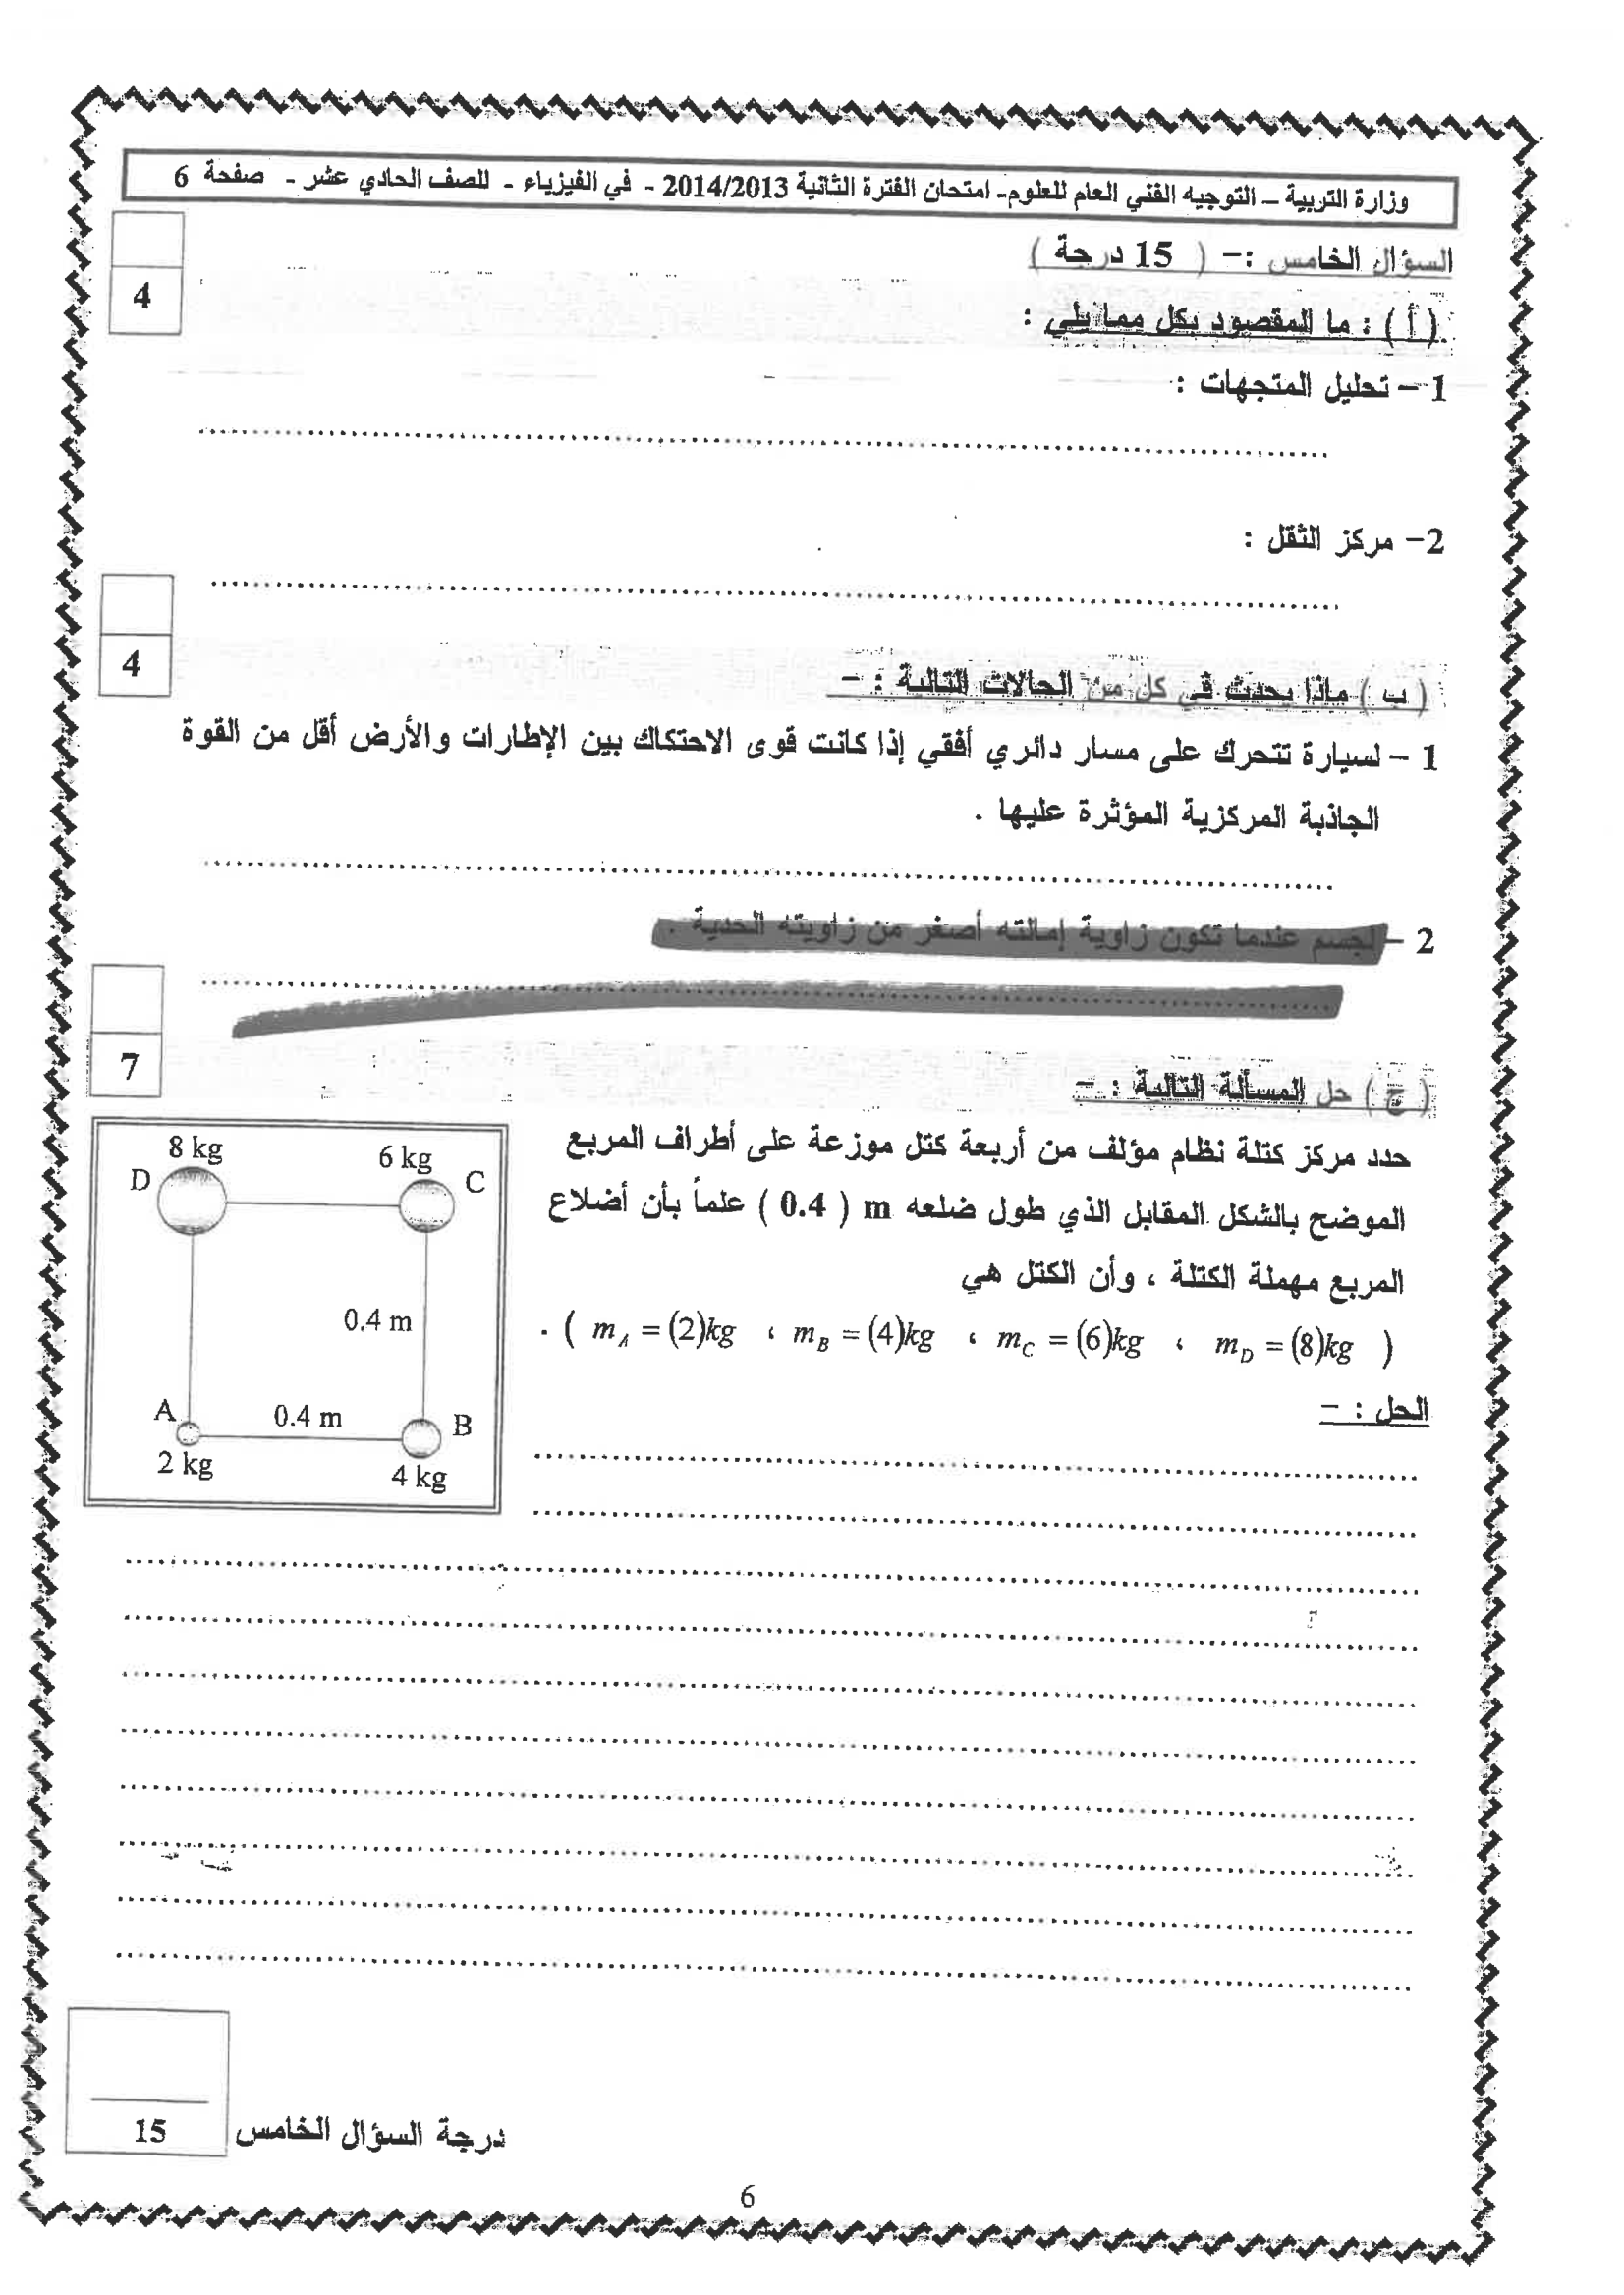 وزارة التربية – التوجيه الفني العام للعلوم- امتحان الفترة الثانية 2014/2013 - في الفيزياء - للصف الحادي عشر - صفحة 6
السؤال الخامس :- ( 15 درجة )
4
( أ ) : ما المقصود بكل مما يلي :
1 – تحليل المتجهات :
2- مركز الثقل :
4
( ب ) ماذا يحدث في كل من الحالات التالية : -
1 – لسيارة تتحرك على مسار دائري أفقي إذا كانت قوى الاحتكاك بين الإطارات والأرض أقل من القوة
الجاذبة المركزية المؤثرة عليها .
2 – لجسم عندما تكون زاوية إمالته أصغر من زاويته الحدية .
7
( ج ) حل المسألة التالية : -
حدد مركز كتلة نظام مؤلف من أربعة كتل موزعة على أطراف المربع
الموضح بالشكل المقابل الذي طول ضلعه m ( 0.4 ) علماً بأن أضلاع
المربع مهملة الكتلة ، وأن الكتل هي
( m_A = (2)kg ، m_B = (4)kg ، m_C = (6)kg ، m_D = (8)kg ) .
8 kg
6 kg
D
C
0.4 m
A
0.4 m
B
2 kg
4 kg
الحل : -
درجة السؤال الخامس
15
6